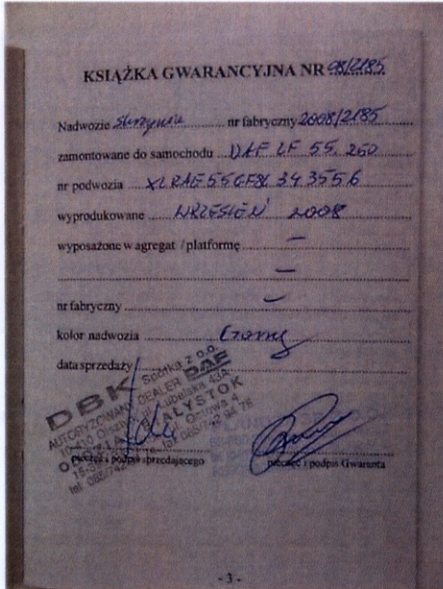 KSIĄŻKA GWARANCYJNA NR 08/2185
Nadwozie Skrzynia nr fabryczny 2008/2185
zamontowane do samochodu DAF LF 55. 250
nr podwozia XLRAE55GF8L343556
wyprodukowane WRZESIEŃ 2008
wyposażone w agregat / platformę —
—
nr fabryczny —
kolor nadwozia Czarny
data sprzedaży
DBK Spółka z o.o.
AUTORYZOWANY DEALER DAF
10-410 Olsztyn, ul. Lubelska 43A
ODDZIAŁ BIAŁYSTOK
tel. 085/742 fax 085/742 94 76
pieczęć i podpis sprzedającego pieczęć i podpis Gwaranta
- 3 -